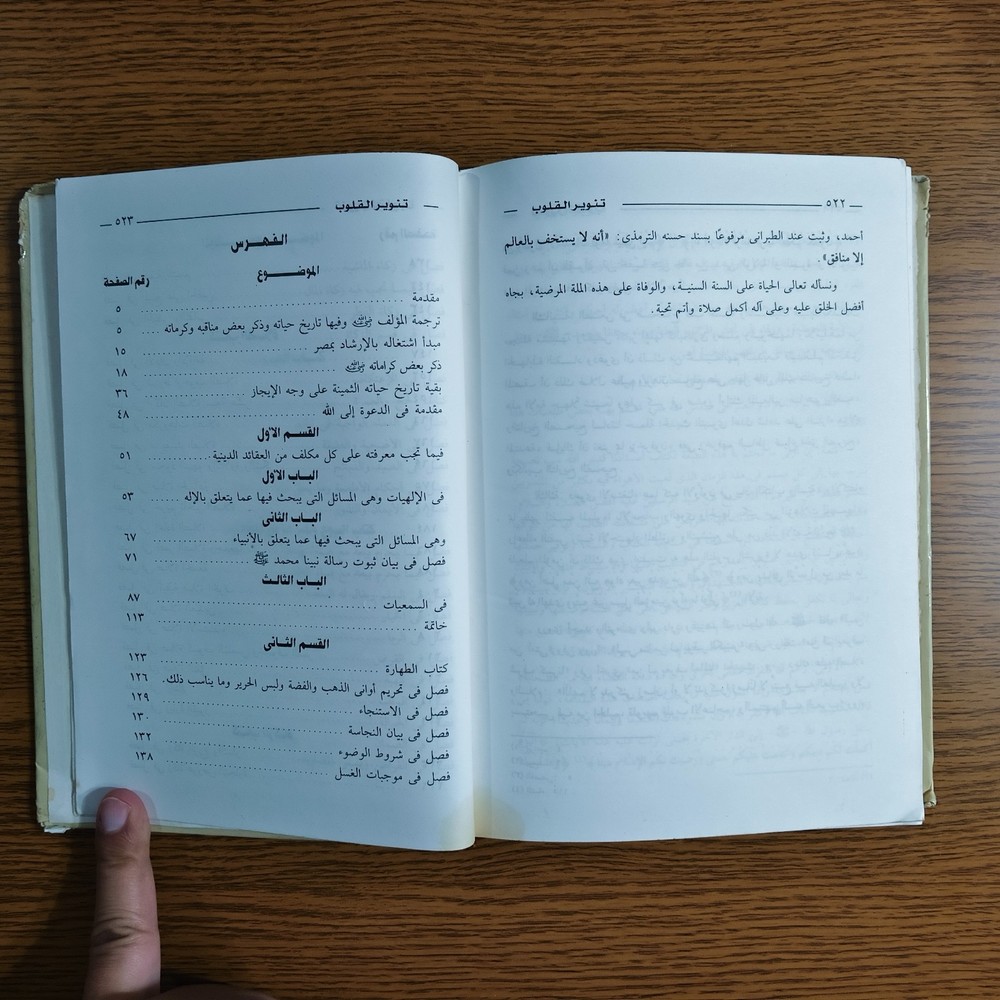 ٥٢٢ تنوير القلوب
أحمد، وثبت عند الطبرانى مرفوعًا بسند حسنه الترمذى: «أنه لا يستخف بالعالم
إلا منافق».
ونسأله تعالى الحياة على السنة السنية، والوفاة على هذه الملة المرضية، بجاه
أفضل الخلق عليه وعلى آله أكمل صلاة وأتم تحية.
تنوير القلوب ٥٢٣
الفهرس
الموضوع رقم الصفحة
مقدمة ٥
ترجمة المؤلف رضي الله عنه وفيها تاريخ حياته وذكر بعض مناقبه وكرماته ٥
مبدأ اشتغاله بالإرشاد بمصر ١٥
ذكر بعض كراماته رضي الله عنه ١٨
بقية تاريخ حياته الثمينة على وجه الإيجاز ٣٦
مقدمة فى الدعوة إلى الله ٤٨
القسم الأول
فيما تجب معرفته على كل مكلف من العقائد الدينية ٥١
الباب الأول
فى الإلهيات وهى المسائل التى يبحث فيها عما يتعلق بالإله ٥٣
الباب الثانى
وهى المسائل التى يبحث فيها عما يتعلق بالأنبياء ٦٧
فصل فى بيان ثبوت رسالة نبينا محمد ﷺ ٧١
الباب الثالث
فى السمعيات ٨٧
خاتمة ١١٣
القسم الثانى
كتاب الطهارة ١٢٣
فصل فى تحريم أوانى الذهب والفضة ولبس الحرير وما يناسب ذلك. ١٢٦
فصل فى الاستنجاء ١٢٩
فصل فى بيان النجاسة ١٣٠
فصل فى شروط الوضوء ١٣٢
فصل فى موجبات الغسل ١٣٨